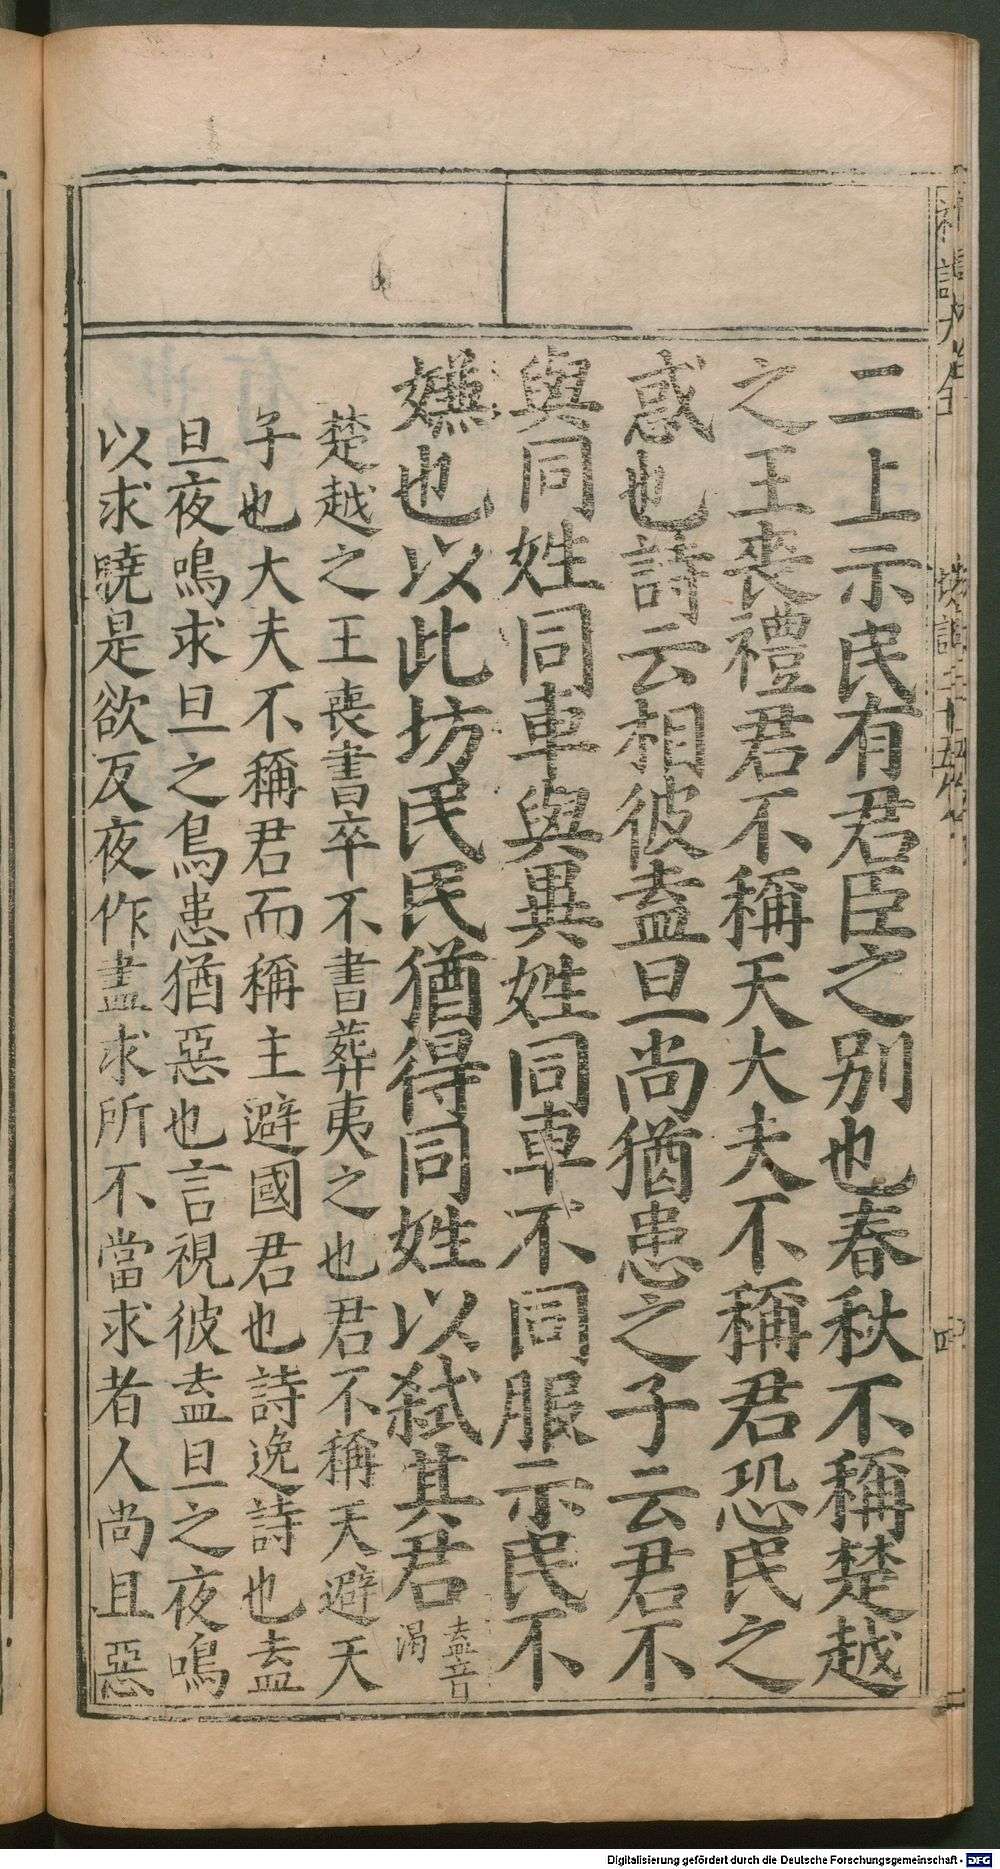 二上示民有君臣之别也春秋不稱楚越
之王丧禮君不稱天大夫不稱君恐民之
惑也詩云相彼盍旦尚猶患之子云君不
與同姓同車與異姓同車不同服示民不
嫌也以此坊民民猶得同姓以弑其君 盍音渴
楚越之王喪書卒不書葬夷之也君不稱天避天
子也大夫不稱君而稱主避國君也詩逸詩也盍
旦夜鳴求旦之鳥患猶惡也言視彼盍旦之夜鳴
以求曉是欲反夜作晝求所不當求者人尚且惡
Digitalisierung gefördert durch die Deutsche Forschungsgemeinschaft - DFG